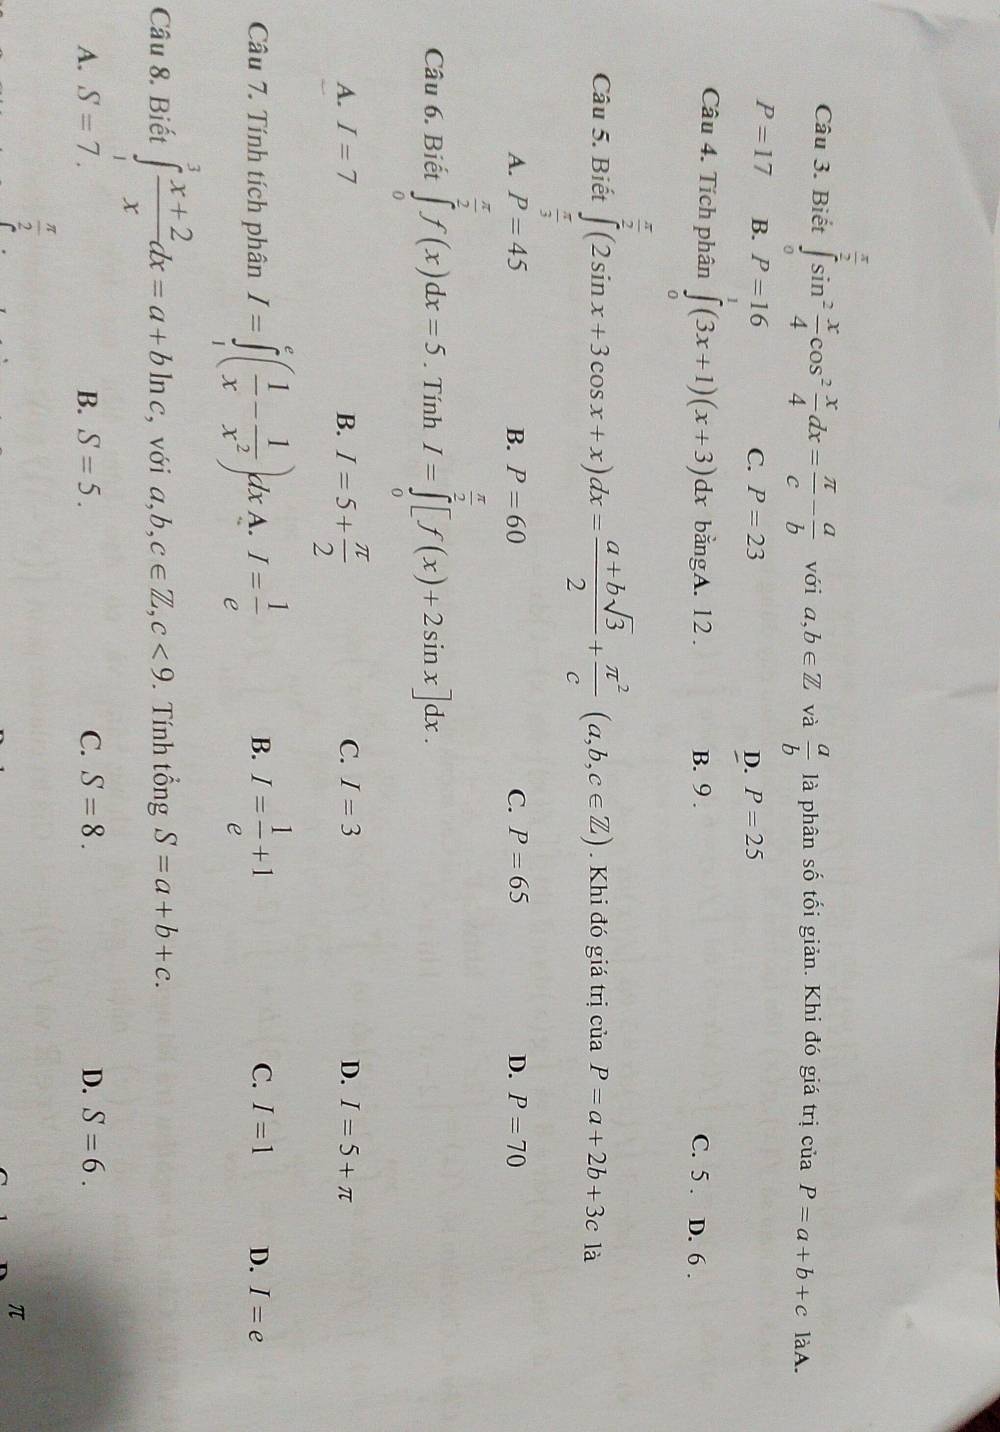 Câu 3. Biết ∫₀^{π/2} sin² x/4 cos² x/4 dx = π/c − a/b với a,b ∈ ℤ và a/b là phân số tối giản. Khi đó giá trị của P = a + b + c làA.
P = 17 B. P = 16 C. P = 23 D. P = 25
Câu 4. Tích phân ∫₀¹ (3x+1)(x+3)dx bằngA. 12 . B. 9 . C. 5 . D. 6 .
Câu 5. Biết ∫_{π/3}^{π/2} (2sin x + 3cos x + x)dx = (a+b√3)/2 + π²/c (a,b,c ∈ ℤ). Khi đó giá trị của P = a + 2b + 3c là
A. P = 45 B. P = 60 C. P = 65 D. P = 70
Câu 6. Biết ∫₀^{π/2} f(x)dx = 5 . Tính I = ∫₀^{π/2} [f(x) + 2sin x]dx .
A. I = 7 B. I = 5 + π/2 C. I = 3 D. I = 5 + π
Câu 7. Tính tích phân I = ∫₁^e (1/x − 1/x²)dx A. I = 1/e B. I = 1/e + 1 C. I = 1 D. I = e
Câu 8. Biết ∫₁³ (x+2)/x dx = a + b ln c, với a,b,c ∈ ℤ, c < 9. Tính tổng S = a + b + c.
A. S = 7 . B. S = 5 . C. S = 8 . D. S = 6 .